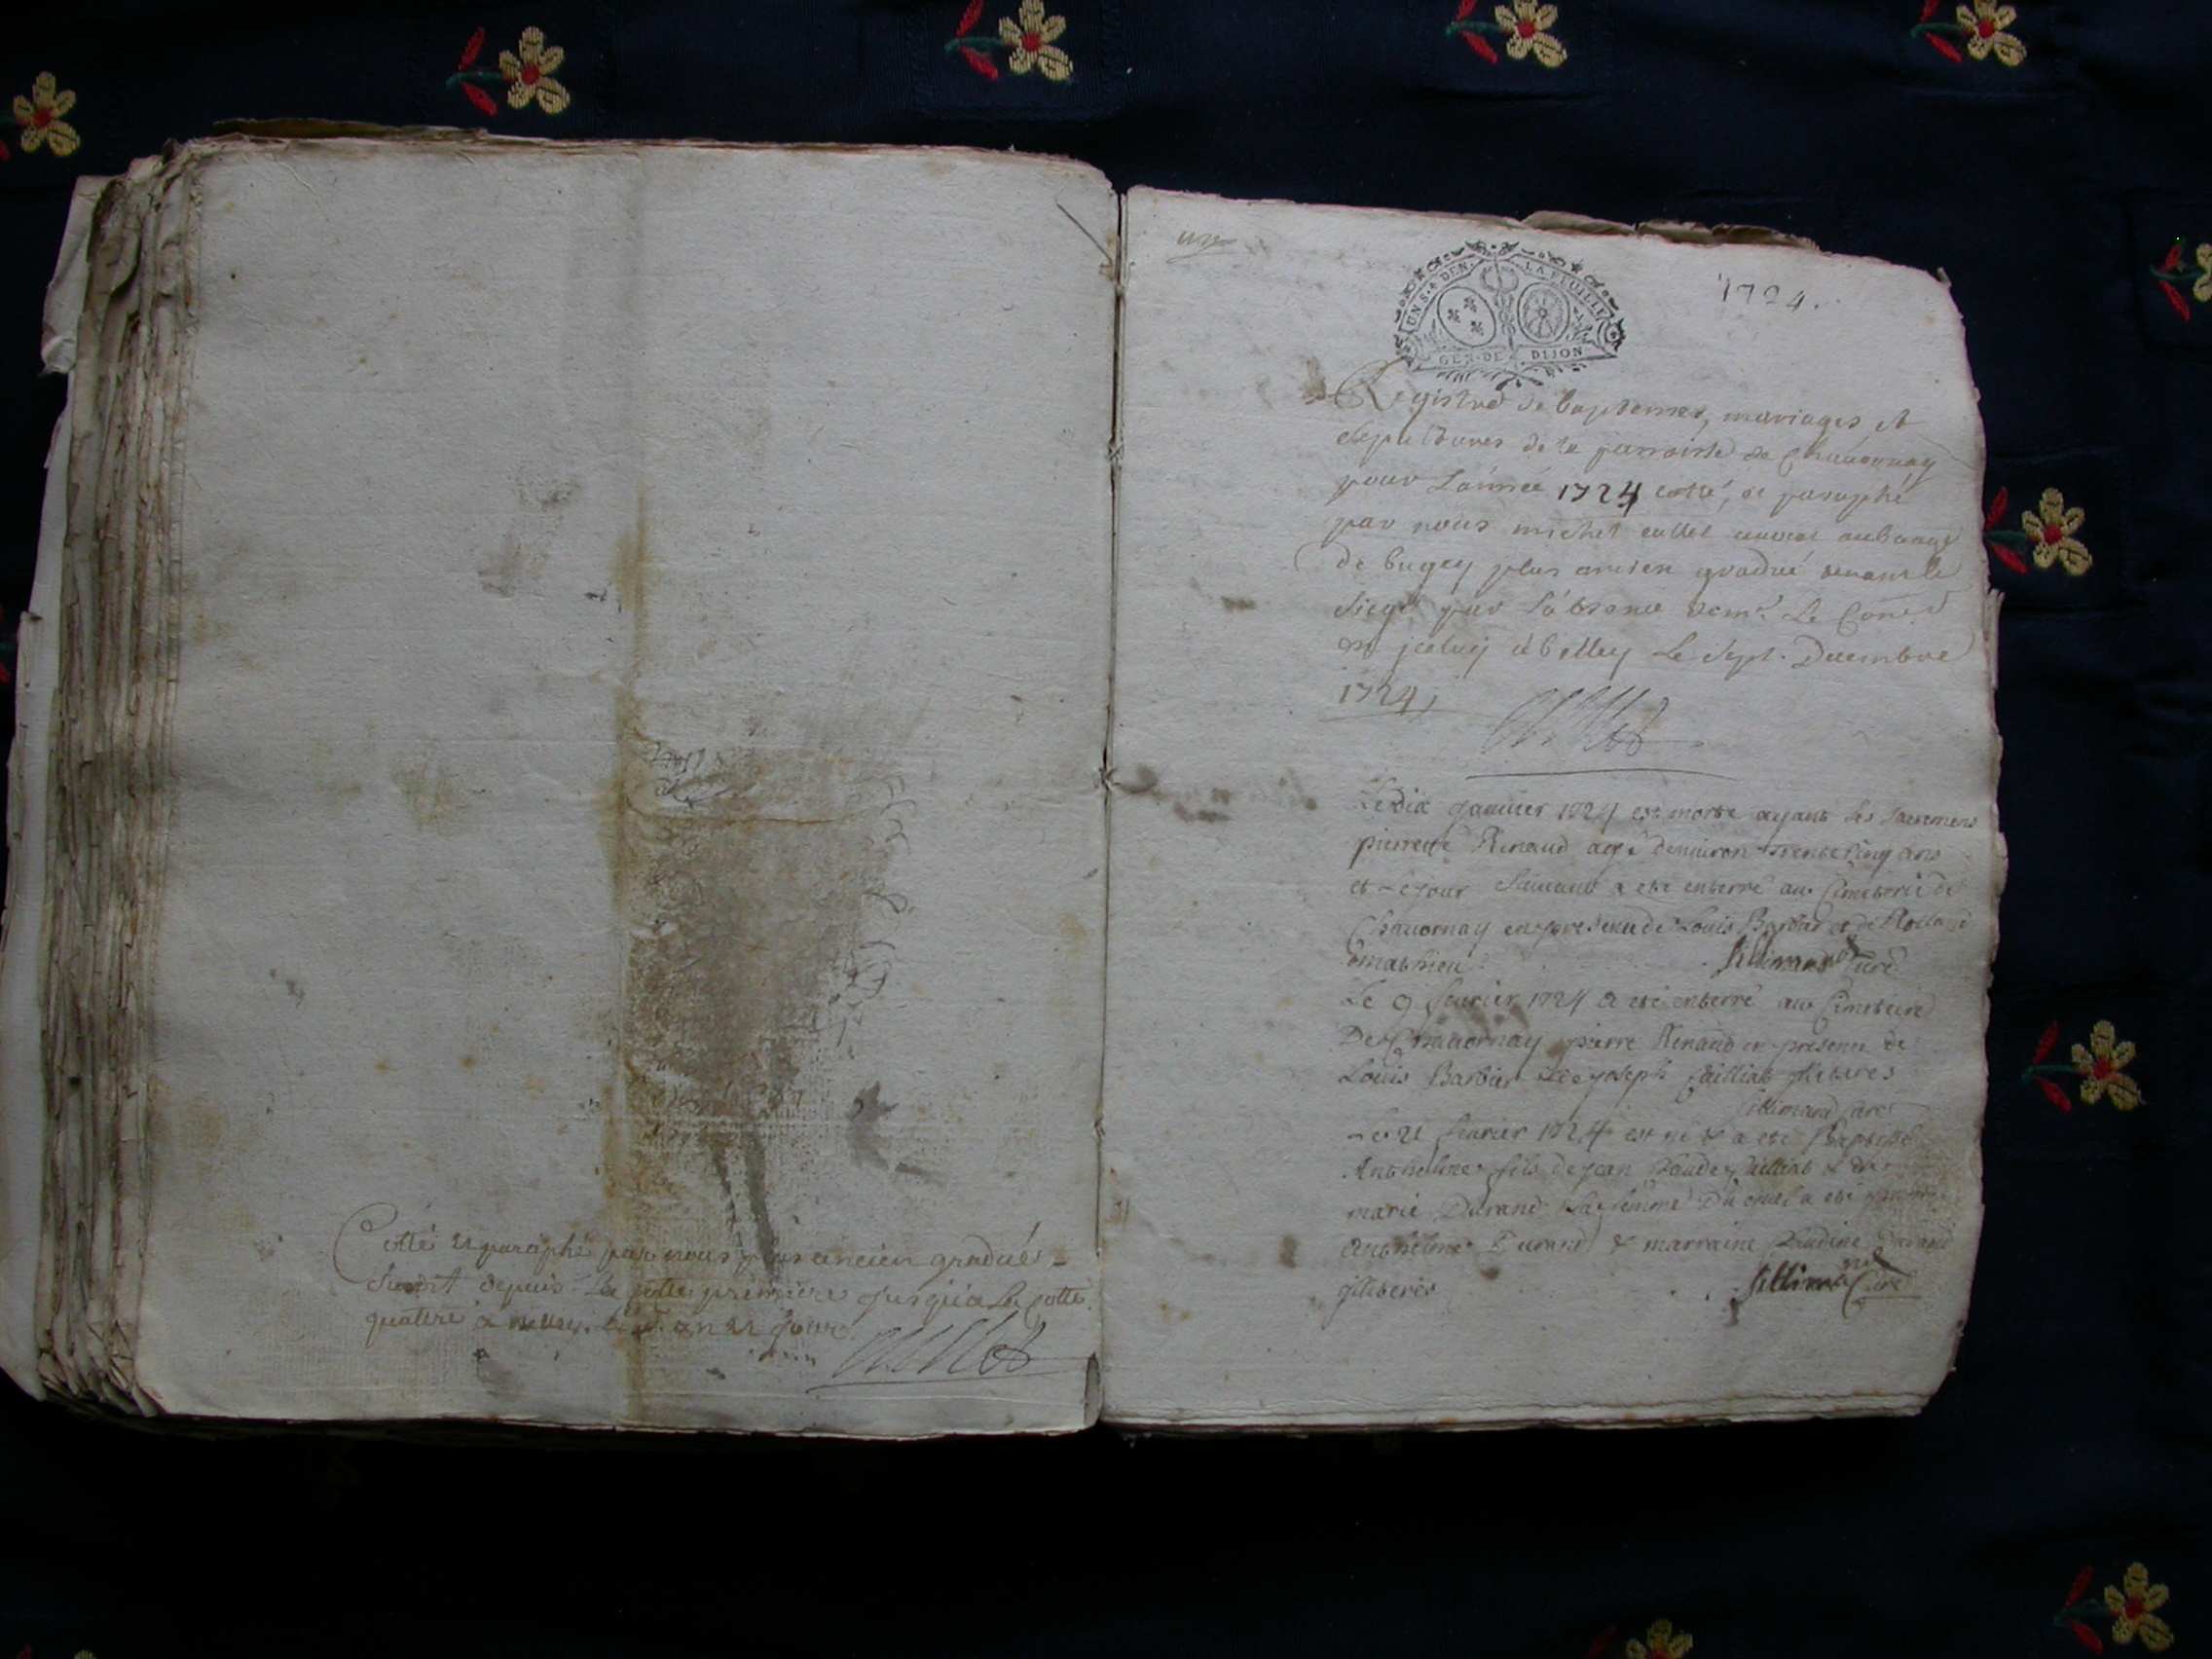 Cotté et paraphé par nous plus ancien gradué
susdit depuis la cotte premiere jusqu'a la cotte
quattre a belley led. an et jour
Cullet
une
UN S. 4 DEN. LA FEUILLE
GEN. DE DIJON
1724.
Registre de baptemes, mariages et
sepultures de la parroisse de Chavornay
pour L'année 1724 cotté, et paraphé
par nous michel cullet avocat au bailiage
de bugey plus ancien gradué tenant le
siege par l'absence de mr. Le
en jceluy a belley Le sept. Decembre
1724,
Cullet
Le dix janvier 1724 est morte ayant les sacremens
pierrette Renaud agé denviron trente cinq ans
et le jour suivant a eté enterré au Cimeterie de
Chavornay en presence de Louis Barbier et de
mathieu Sillimand Curé
Le 9 fevrier 1724 a eté enterré au Cimetiere
De Chavornay pierre Renaud en presence de
Louis Barbier et joseph illiterés
Sillimand Curé
Le 21 fevrier 1724 est né & a eté Baptisé
Anthelme fils de jean & de
marie Durand sa femme Du quel a eté parrain
Anthelme Durand & marraine Claudine Durand
illiterés Sillimand Curé